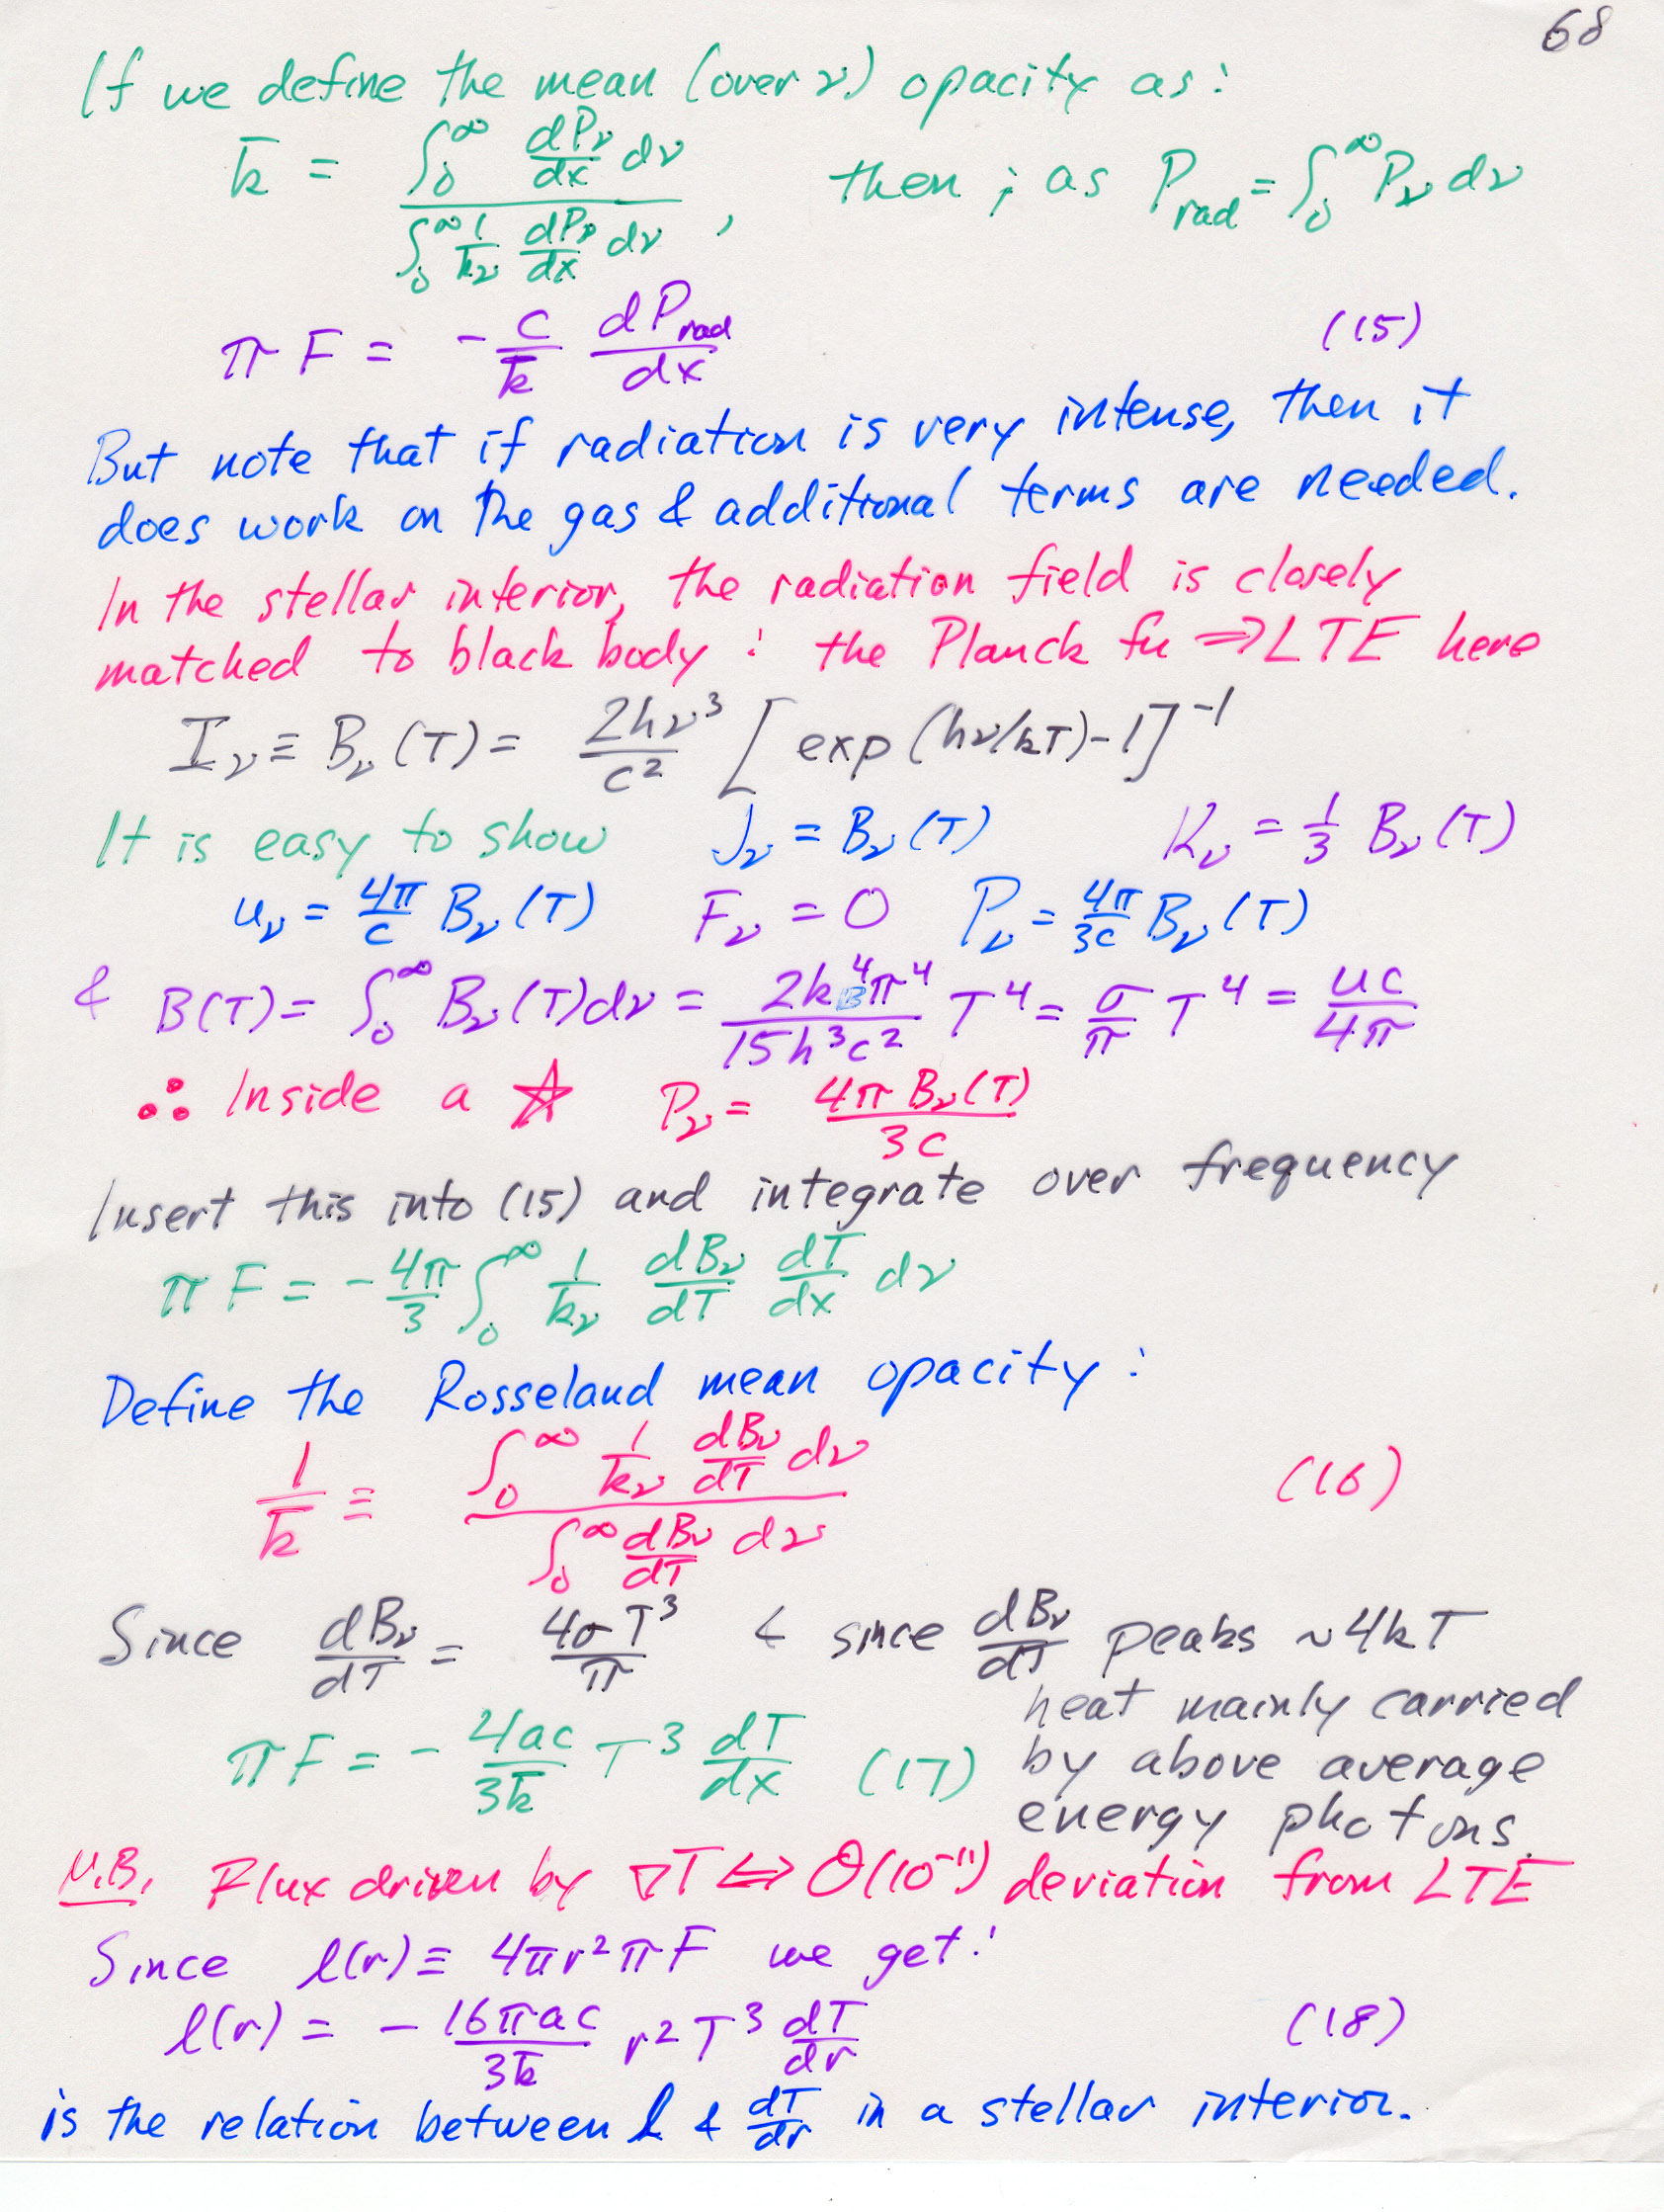 68
If we define the mean (over ν) opacity as:
k̄ = ∫₀^∞ dPν/dx dν / ∫₀^∞ 1/kν dPν/dx dν , then ; as P_rad = ∫₀^∞ Pν dν
πF = - c/k̄ dP_rad/dx (15)
But note that if radiation is very intense, then it
does work on the gas & additional terms are needed.
In the stellar interior, the radiation field is closely
matched to black body : the Planck fn ⇒ LTE here
Iν ≡ Bν(T) = 2hν³/c² [exp(hν/kT)-1]⁻¹
It is easy to show Jν = Bν(T) Kν = 1/3 Bν(T)
uν = 4π/c Bν(T) Fν = 0 Pν = 4π/3c Bν(T)
& B(T) = ∫₀^∞ Bν(T)dν = 2k_B⁴π⁴/15h³c² T⁴ = σ/π T⁴ = uc/4π
∴ Inside a ☆ Pν = 4πBν(T)/3c
Insert this into (15) and integrate over frequency
πF = - 4π/3 ∫₀^∞ 1/kν dBν/dT dT/dx dν
Define the Rosseland mean opacity:
1/k̄ ≡ ∫₀^∞ 1/kν dBν/dT dν / ∫₀^∞ dBν/dT dν (16)
Since dBν/dT = 4σT³/π & since dBν/dT peaks ~4kT
heat mainly carried
πF = - 4ac/3k̄ T³ dT/dx (17) by above average
energy photons.
N.B. Flux driven by ∇T ⇔ O(10⁻¹¹) deviation from LTE
Since ℓ(r) ≡ 4πr²πF we get:
ℓ(r) = - 16πac/3k̄ r²T³ dT/dr (18)
is the relation between ℓ & dT/dr in a stellar interior.